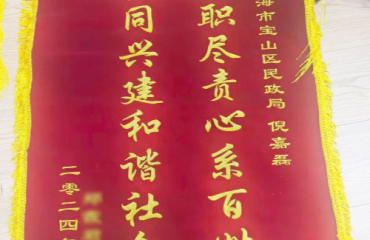 海市宝山区民政局 倪嘉磊
职尽责心系百
同兴建和谐社
二零二四